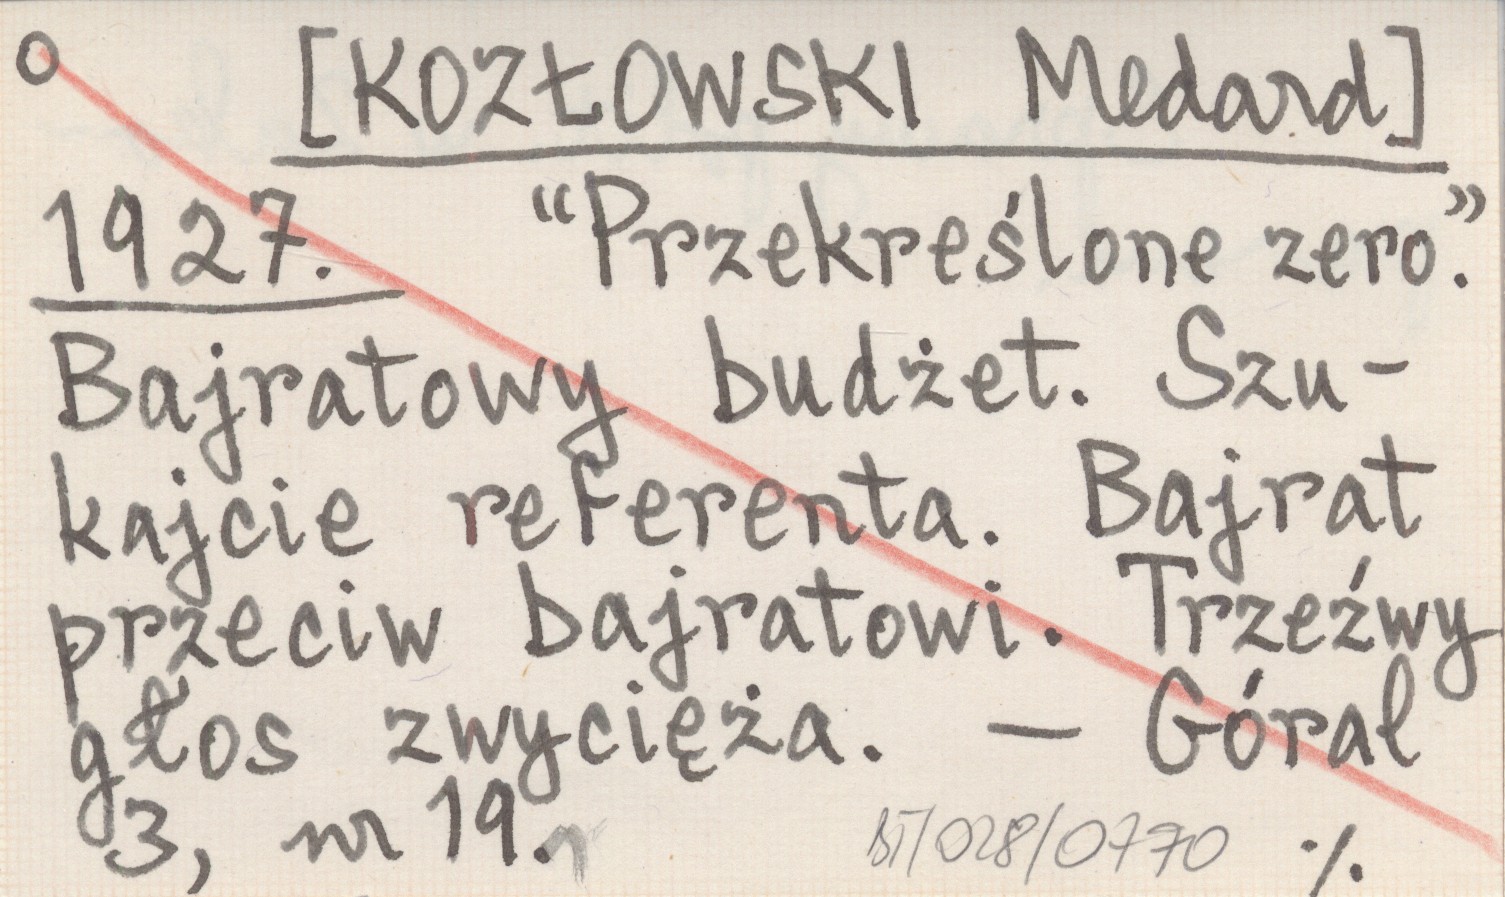 [KOZŁOWSKI Medard]
1927. “Przekreślone zero.”
Bajratowy budżet. Szu-
kajcie referenta. Bajrat
przeciw bajratowi. Trzeźwy
głos zwycięża. — Góral
3, nr 19.
BT/028/0770 ./.